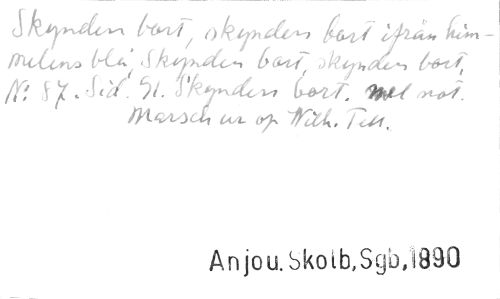 Skynden bort, skynden bort ifrån him-
melens blå, Skynden bort, skynden bort,
N: 87. Sid. 91. Skynden bort. mel not.
Marsch ur op Wilh. Tell.
Anjou. Skolb, Sgb, 1890